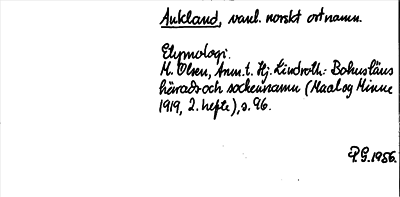 Aukland, vanl. norskt ortnamn.
Etymologi.
M. Olsen, Anm. t. Hj. Lindroth: Bohusläns
härads- och sockennamn (Maal og Minne
1919, 2. hefte), s. 96.
P.G. 1986.